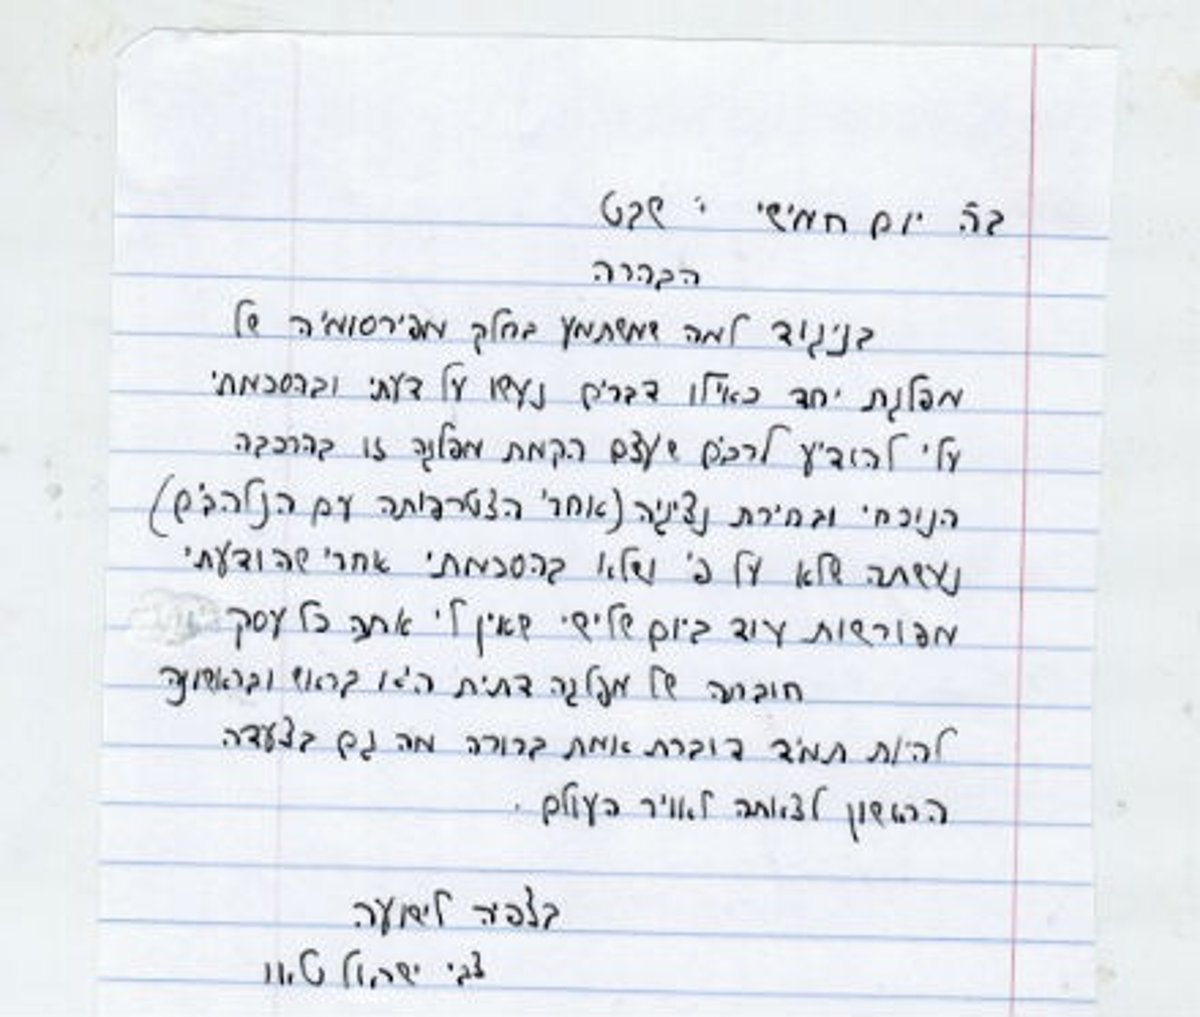 ב״ה יום חמישי י׳ שבט
הבהרה
בניגוד למה שמשתמע בחלק מפירסומיה של
מפלגת יחד כאילו דברים נעשו על דעתי ובהסכמתי
עלי להודיע לרבים שעצם הקמת מפלגה זו בהרכבה
הנוכחי ובחירת נציגיה (אחרי הצטרפותה עם הנלהבים)
נעשתה שלא על פי ושלא בהסכמתי אחרי שהודעתי
מפורשות עוד ביום שלישי שאין לי אתה כל עסק
חובתה של מפלגה דתית היא בראש ובראשונה
להיות תמיד דוברת אמת ברורה מה גם בצעדה
הראשון לצאתה לאויר העולם .
בצפיה לישועה
צבי ישראל טאו